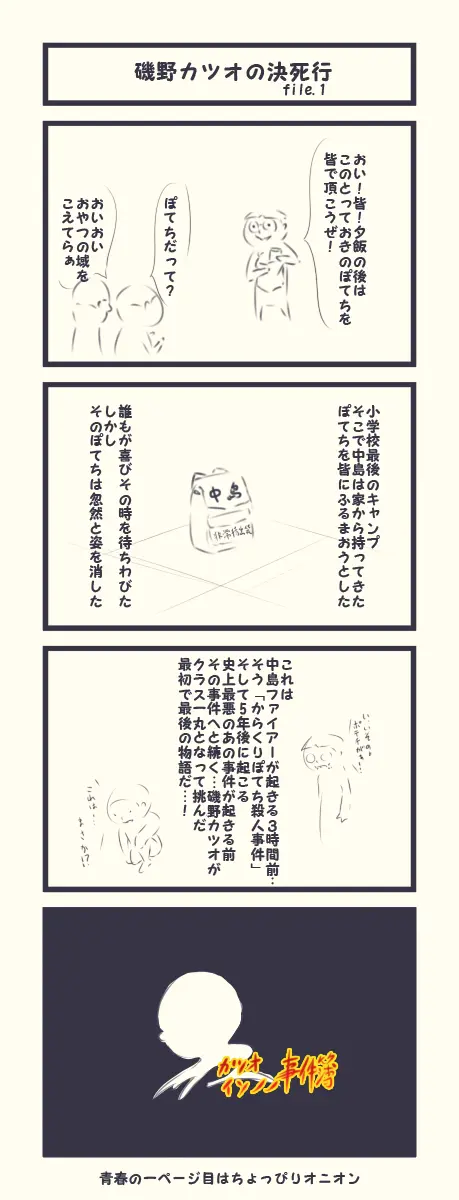 磯野カツオの決死行
file.1
おい！皆！夕飯の後は
このとっておきのぽてちを
皆で頂こうぜ！
ぽてちだって？
おいおい
おやつの域を
こえてらぁ
小学校最後のキャンプ
そこで中島は家から持ってきた
ぽてちを皆にふるまおうとした
中島
誰もが喜びその時を待ちわびた
しかし
そのぽてちは忽然と姿を消した
これは
中島ファイアーが起きる３時間前…
そう「からくりぽてち殺人事件」
そして５年後に起こる
史上最悪のあの事件が起きる前
その事件へと続く…磯野カツオが
クラス一丸となって挑んだ
最初で最後の物語だ…！
これは…
まさか！？
カツオ
イソノノ事件簿
青春の一ページ目はちょっぴりオニオン